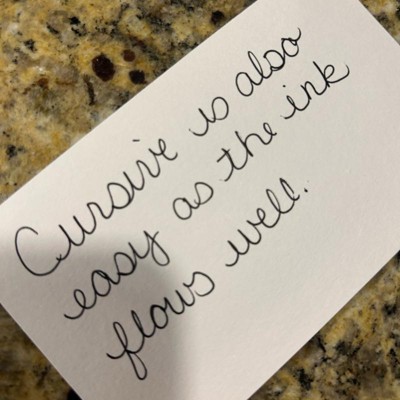 Cursive is also
easy as the ink
flows well.